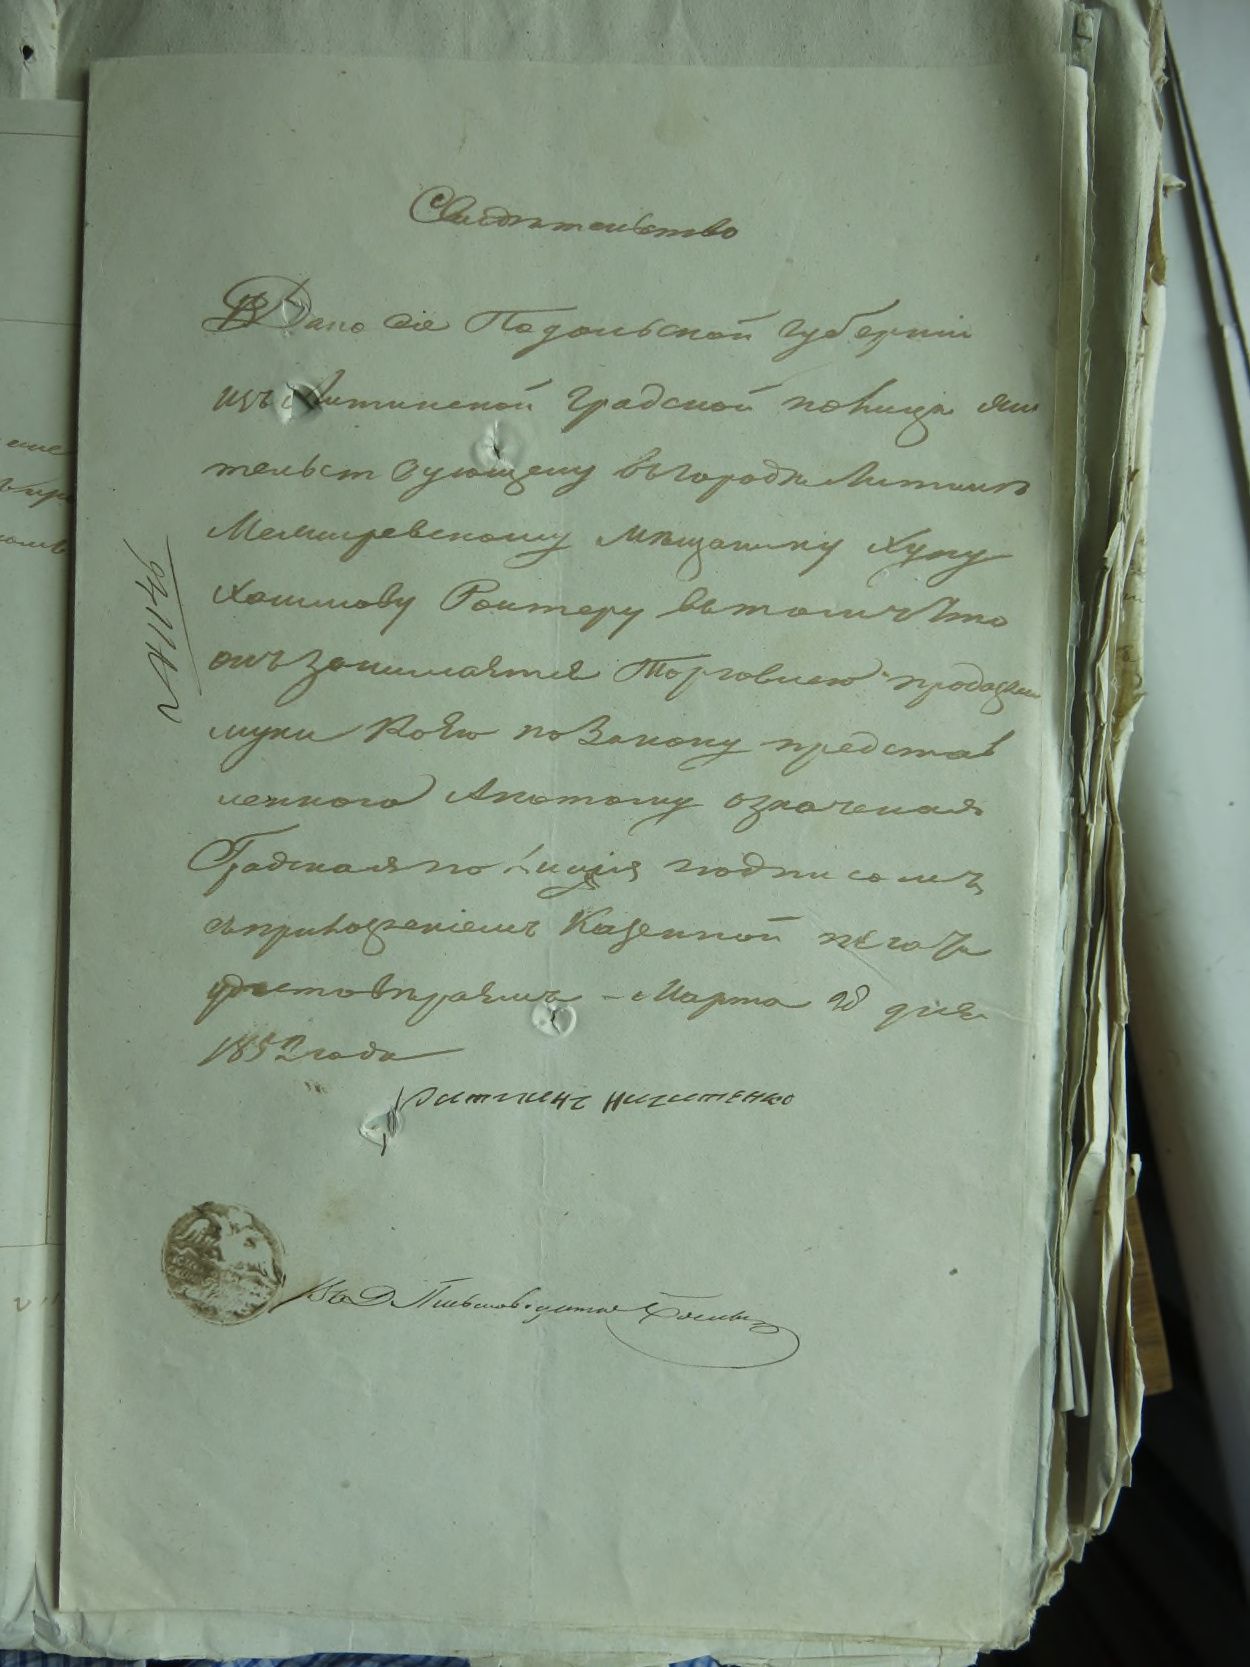 Свидѣтельство
Дано сіе Подольской губерніи
изъ Литинской Градской полиціи жи
тельст вующему въ городѣ Литинѣ
Немировскому мѣщанину
Хаимову въ томъ что
онъ занимается Торговлею продажею
муки по Закону представ
ленного Апотому означеная
Градская полиція подписомъ
съ приложеніемъ Казенной печати
удостовѣряетъ Марта 28 дня
1852 года
Никитенко
Письмоводителя
№ 1146